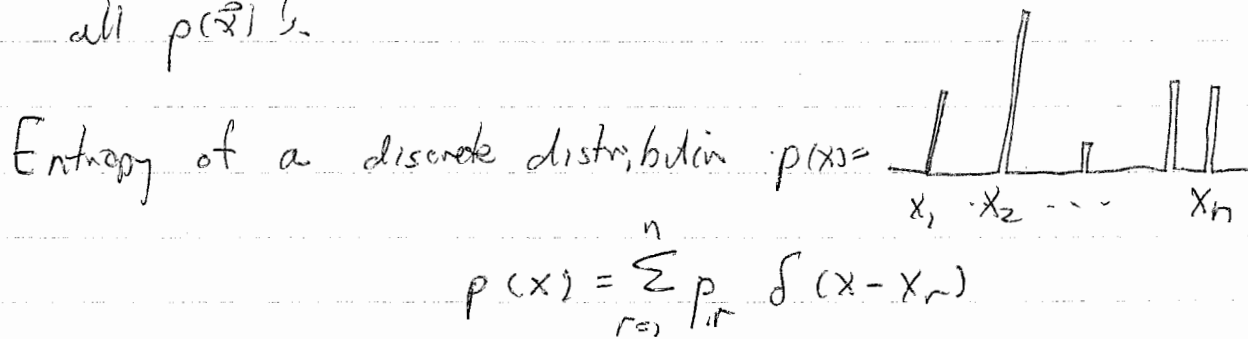 all p(x⃗)'s.
Entropy of a discrete distribution p(x)=
x₁ x₂ ... xₙ
p(x) = Σ_{r=1}^{n} p_r δ(x-x_r)